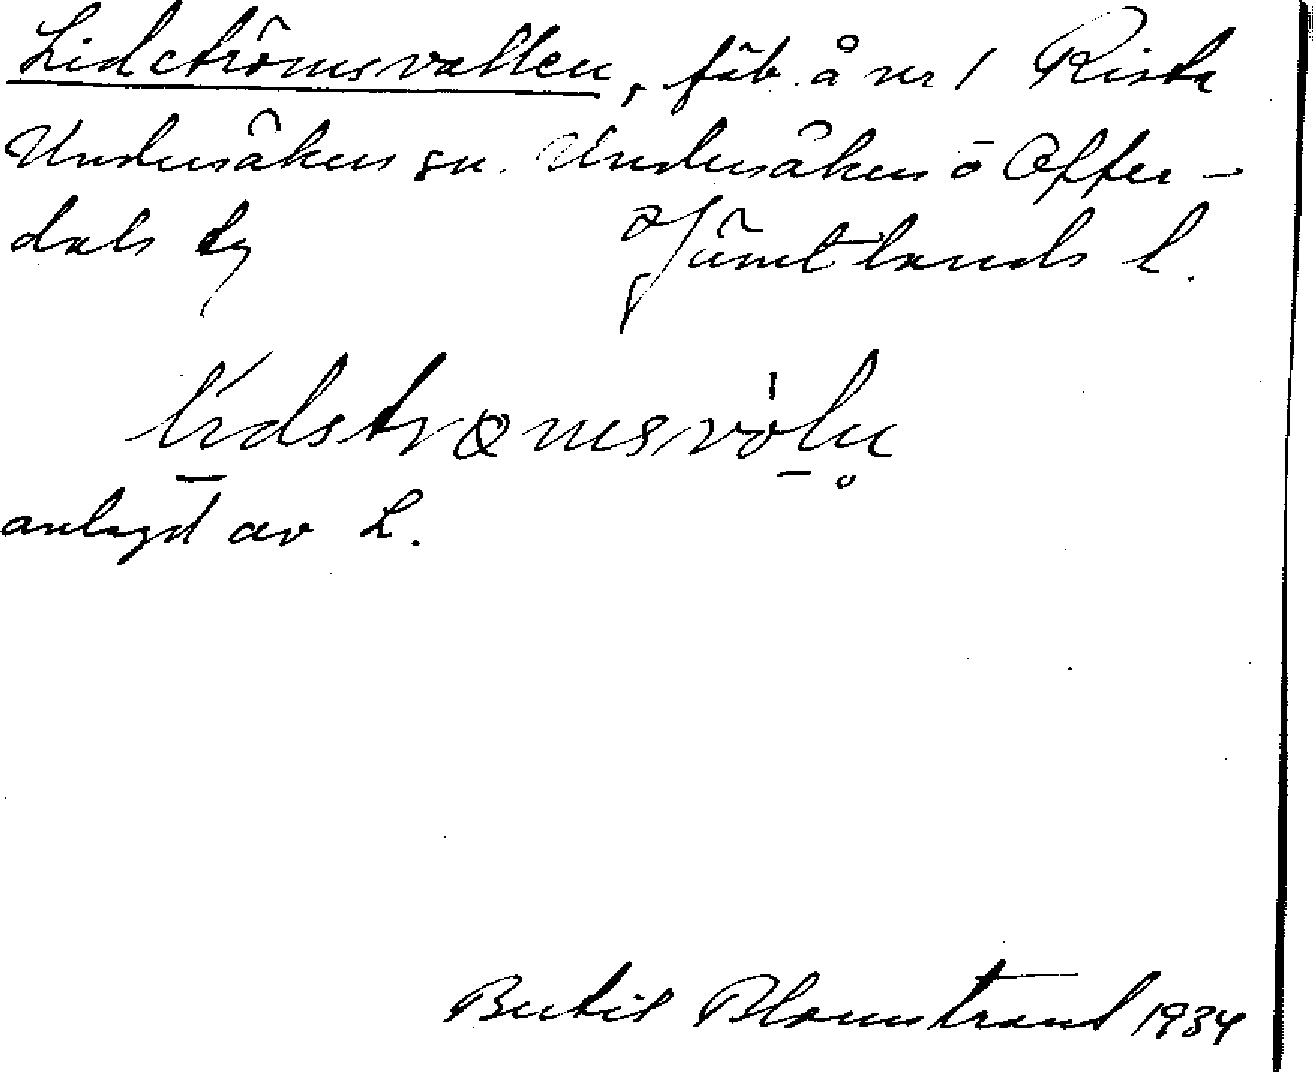 Lidströmsvallen, fäb. å nr 1 Rista
Undersåkers sn. Undersåkers o Offer-
dals tg Jämtlands l.
anlagd av L.
Bertil Blomstrand 1934